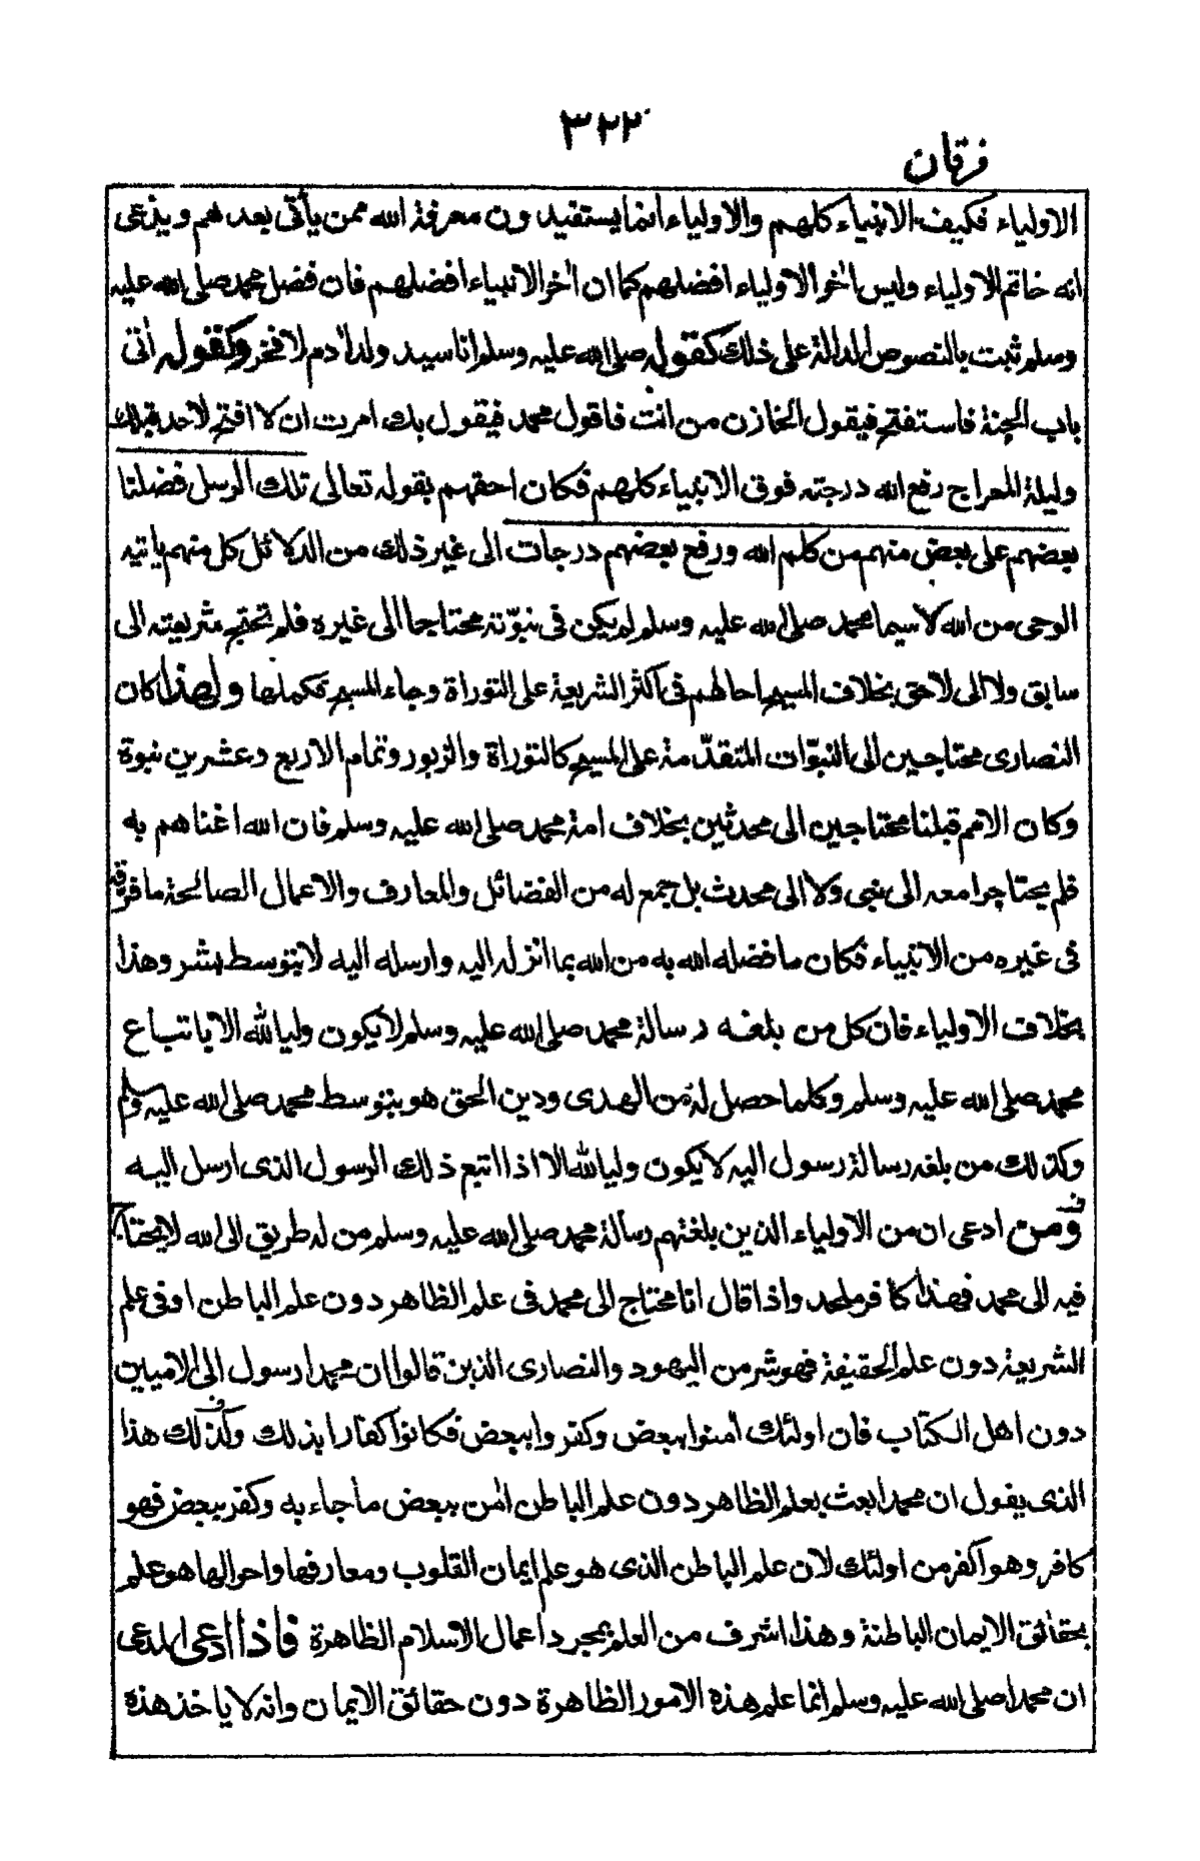 ٣٢٢
فرقان
الاولياء فكيف الانبياء كلهم والاولياء انما يستفيدون معرفة الله ممن يأتى بعدهم ويدعى
انه خاتم الاولياء وليس اٰخر الاولياء افضلهم كما ان اٰخر الانبياء افضلهم فان فضل محمد صلى الله عليه
وسلم ثبت بالنصوص الدالة على ذلك كقوله صلى الله عليه وسلم انا سيد ولد اٰدم لا فخر وكقوله اٰتى
باب الجنة فاستفتح فيقول الخازن من انت فاقول محمد فيقول بك امرت ان لا افتح لاحد قبلك
وليلة المعراج رفع الله درجته فوق الانبياء كلهم فكان احقهم بقوله تعالى تلك الرسل فضلنا
بعضهم على بعض منهم من كلم الله ورفع بعضهم درجات الى غير ذلك من الدلائل كل منهم ياتيه
الوحى من الله لا سيما محمد صلى الله عليه وسلم لم يكن فى نبوّته محتاجا الى غيره فلم تحتج شريعته الى
سابق ولا الى لاحق بخلاف المسيح احالهم فى اكثر الشريعة على التوراة وجاء المسيح فكملها ولهذا كان
النصارى محتاجين الى النبوّات المتقدّمة على المسيح كالتوراة والزبور وتمام الاربع وعشرين نبوة
وكان الامم قبلنا محتاجين الى محدثين بخلاف امة محمد صلى الله عليه وسلم فان الله اغناهم به
فلم يحتاجوا معه الى نبى ولا الى محدث بل جمع له من الفضائل والمعارف والاعمال الصالحة ما فرقه
فى غيره من الانبياء فكان ما فضله الله به من الله بما انزله اليه وارسله اليه لا بتوسط بشر وهذا
بخلاف الاولياء فان كل من بلغه رسالة محمد صلى الله عليه وسلم لا يكون وليا لله الا باتباع
محمد صلى الله عليه وسلم وكلما حصل له من الهدى ودين الحق هو بتوسط محمد صلى الله عليه وسلم
وكذلك من بلغه رسالة رسول اليه لا يكون وليا لله الا اذا اتبع ذلك الرسول الذى ارسل اليه
ومن ادعى ان من الاولياء الذين بلغتهم رسالة محمد صلى الله عليه وسلم من له طريق الى الله لا يحتاج
فيه الى محمد فهذا كافر ملحد واذا قال انا محتاج الى محمد فى علم الظاهر دون علم الباطن او فى علم
الشريعة دون علم الحقيقة فهو شر من اليهود والنصارى الذين قالوا ان محمدا رسول الى الاميين
دون اهل الكتاب فان اولئك اٰمنوا ببعض وكفروا ببعض فكانوا كفارا بذلك وكذلك هذا
الذى يقول ان محمدا بعث بعلم الظاهر دون علم الباطن اٰمن ببعض ما جاء به وكفر ببعض فهو
كافر وهو اكفر من اولئك لان علم الباطن الذى هو علم ايمان القلوب ومعارفها واحوالها هو علم
بحقائق الايمان الباطنة وهذا اشرف من العلم بمجرد اعمال الاسلام الظاهرة فاذا ادعى المدعى
ان محمدا صلى الله عليه وسلم انما علم هذه الامور الظاهرة دون حقائق الايمان وانه لا ياخذ هذه